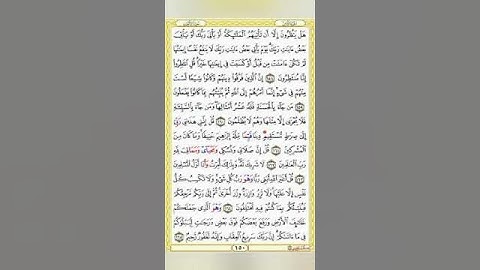 هَلْ يَنظُرُونَ إِلَّا أَن تَأْتِيَهُمُ الْمَلَٰٓئِكَةُ أَوْ يَأْتِيَ رَبُّكَ أَوْ يَأْتِيَ
بَعْضُ ءَايَٰتِ رَبِّكَ يَوْمَ يَأْتِي بَعْضُ ءَايَٰتِ رَبِّكَ لَا يَنفَعُ نَفْسًا إِيمَٰنُهَا
لَمْ تَكُنْ ءَامَنَتْ مِن قَبْلُ أَوْ كَسَبَتْ فِي إِيمَٰنِهَا خَيْرًا قُلِ انتَظِرُوا
إِنَّا مُنتَظِرُونَ ١٥٨ إِنَّ الَّذِينَ فَرَّقُوا دِينَهُمْ وَكَانُوا شِيَعًا لَّسْتَ
مِنْهُمْ فِي شَيْءٍ إِنَّمَا أَمْرُهُمْ إِلَى اللَّهِ ثُمَّ يُنَبِّئُهُم بِمَا كَانُوا يَفْعَلُونَ
١٥٩ مَن جَاءَ بِالْحَسَنَةِ فَلَهُ عَشْرُ أَمْثَالِهَا وَمَن جَاءَ بِالسَّيِّئَةِ
فَلَا يُجْزَىٰ إِلَّا مِثْلَهَا وَهُمْ لَا يُظْلَمُونَ ١٦٠ قُلْ إِنَّنِي هَدَىٰنِي رَبِّي
إِلَىٰ صِرَٰطٍ مُّسْتَقِيمٍ دِينًا قِيَمًا مِّلَّةَ إِبْرَٰهِيمَ حَنِيفًا وَمَا كَانَ مِنَ
الْمُشْرِكِينَ ١٦١ قُلْ إِنَّ صَلَاتِي وَنُسُكِي وَمَحْيَايَ وَمَمَاتِي لِلَّهِ
رَبِّ الْعَٰلَمِينَ ١٦٢ لَا شَرِيكَ لَهُ وَبِذَٰلِكَ أُمِرْتُ وَأَنَا أَوَّلُ الْمُسْلِمِينَ
١٦٣ قُلْ أَغَيْرَ اللَّهِ أَبْغِي رَبًّا وَهُوَ رَبُّ كُلِّ شَيْءٍ وَلَا تَكْسِبُ كُلُّ
نَفْسٍ إِلَّا عَلَيْهَا وَلَا تَزِرُ وَازِرَةٌ وِزْرَ أُخْرَىٰ ثُمَّ إِلَىٰ رَبِّكُم مَّرْجِعُكُمْ
فَيُنَبِّئُكُم بِمَا كُنتُمْ فِيهِ تَخْتَلِفُونَ ١٦٤ وَهُوَ الَّذِي جَعَلَكُمْ
خَلَٰٓئِفَ الْأَرْضِ وَرَفَعَ بَعْضَكُمْ فَوْقَ بَعْضٍ دَرَجَٰتٍ لِّيَبْلُوَكُمْ
فِي مَا ءَاتَىٰكُمْ إِنَّ رَبَّكَ سَرِيعُ الْعِقَابِ وَإِنَّهُ لَغَفُورٌ رَّحِيمٌ ١٦٥
١٥٠